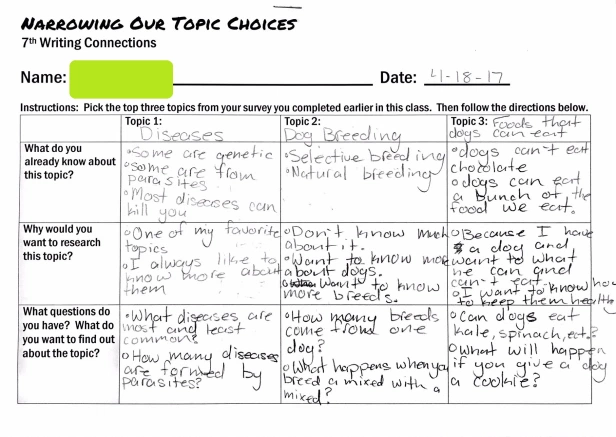 Narrowing Our Topic Choices
7th Writing Connections
Name: Date: 4-18-17
Instructions: Pick the top three topics from your survey you completed earlier in this class. Then follow the directions below.
Topic 1:
Diseases
Topic 2:
Dog Breeding
Topic 3: Foods that
dogs can eat
What do you
already know about
this topic?
•Some are genetic
•Some are from
parasites
•Most diseases can
kill you
•Selective breeding
•Natural breeding
•dogs can't eat
chocolate
•dogs can eat
a bunch of the
food we eat.
Why would you
want to research
this topic?
•One of my favorite
topics
•I always like to
know more about
them
•Don't know much
about it.
•Want to know more
about dogs.
•Want to know
more breeds.
•Because I have
a dog and
want to what
he can and
can't eat.
•I want to know how
to keep them healthy
What questions do
you have? What do
you want to find out
about the topic?
•What diseases are
most and least
common?
•How many diseases
are formed by
parasites?
•How many breeds
come from one
dog?
•What happens when you
breed a mixed with a
mixed?
•Can dogs eat
kale, spinach, ect.?
•What will happen
if you give a dog
a cookie?